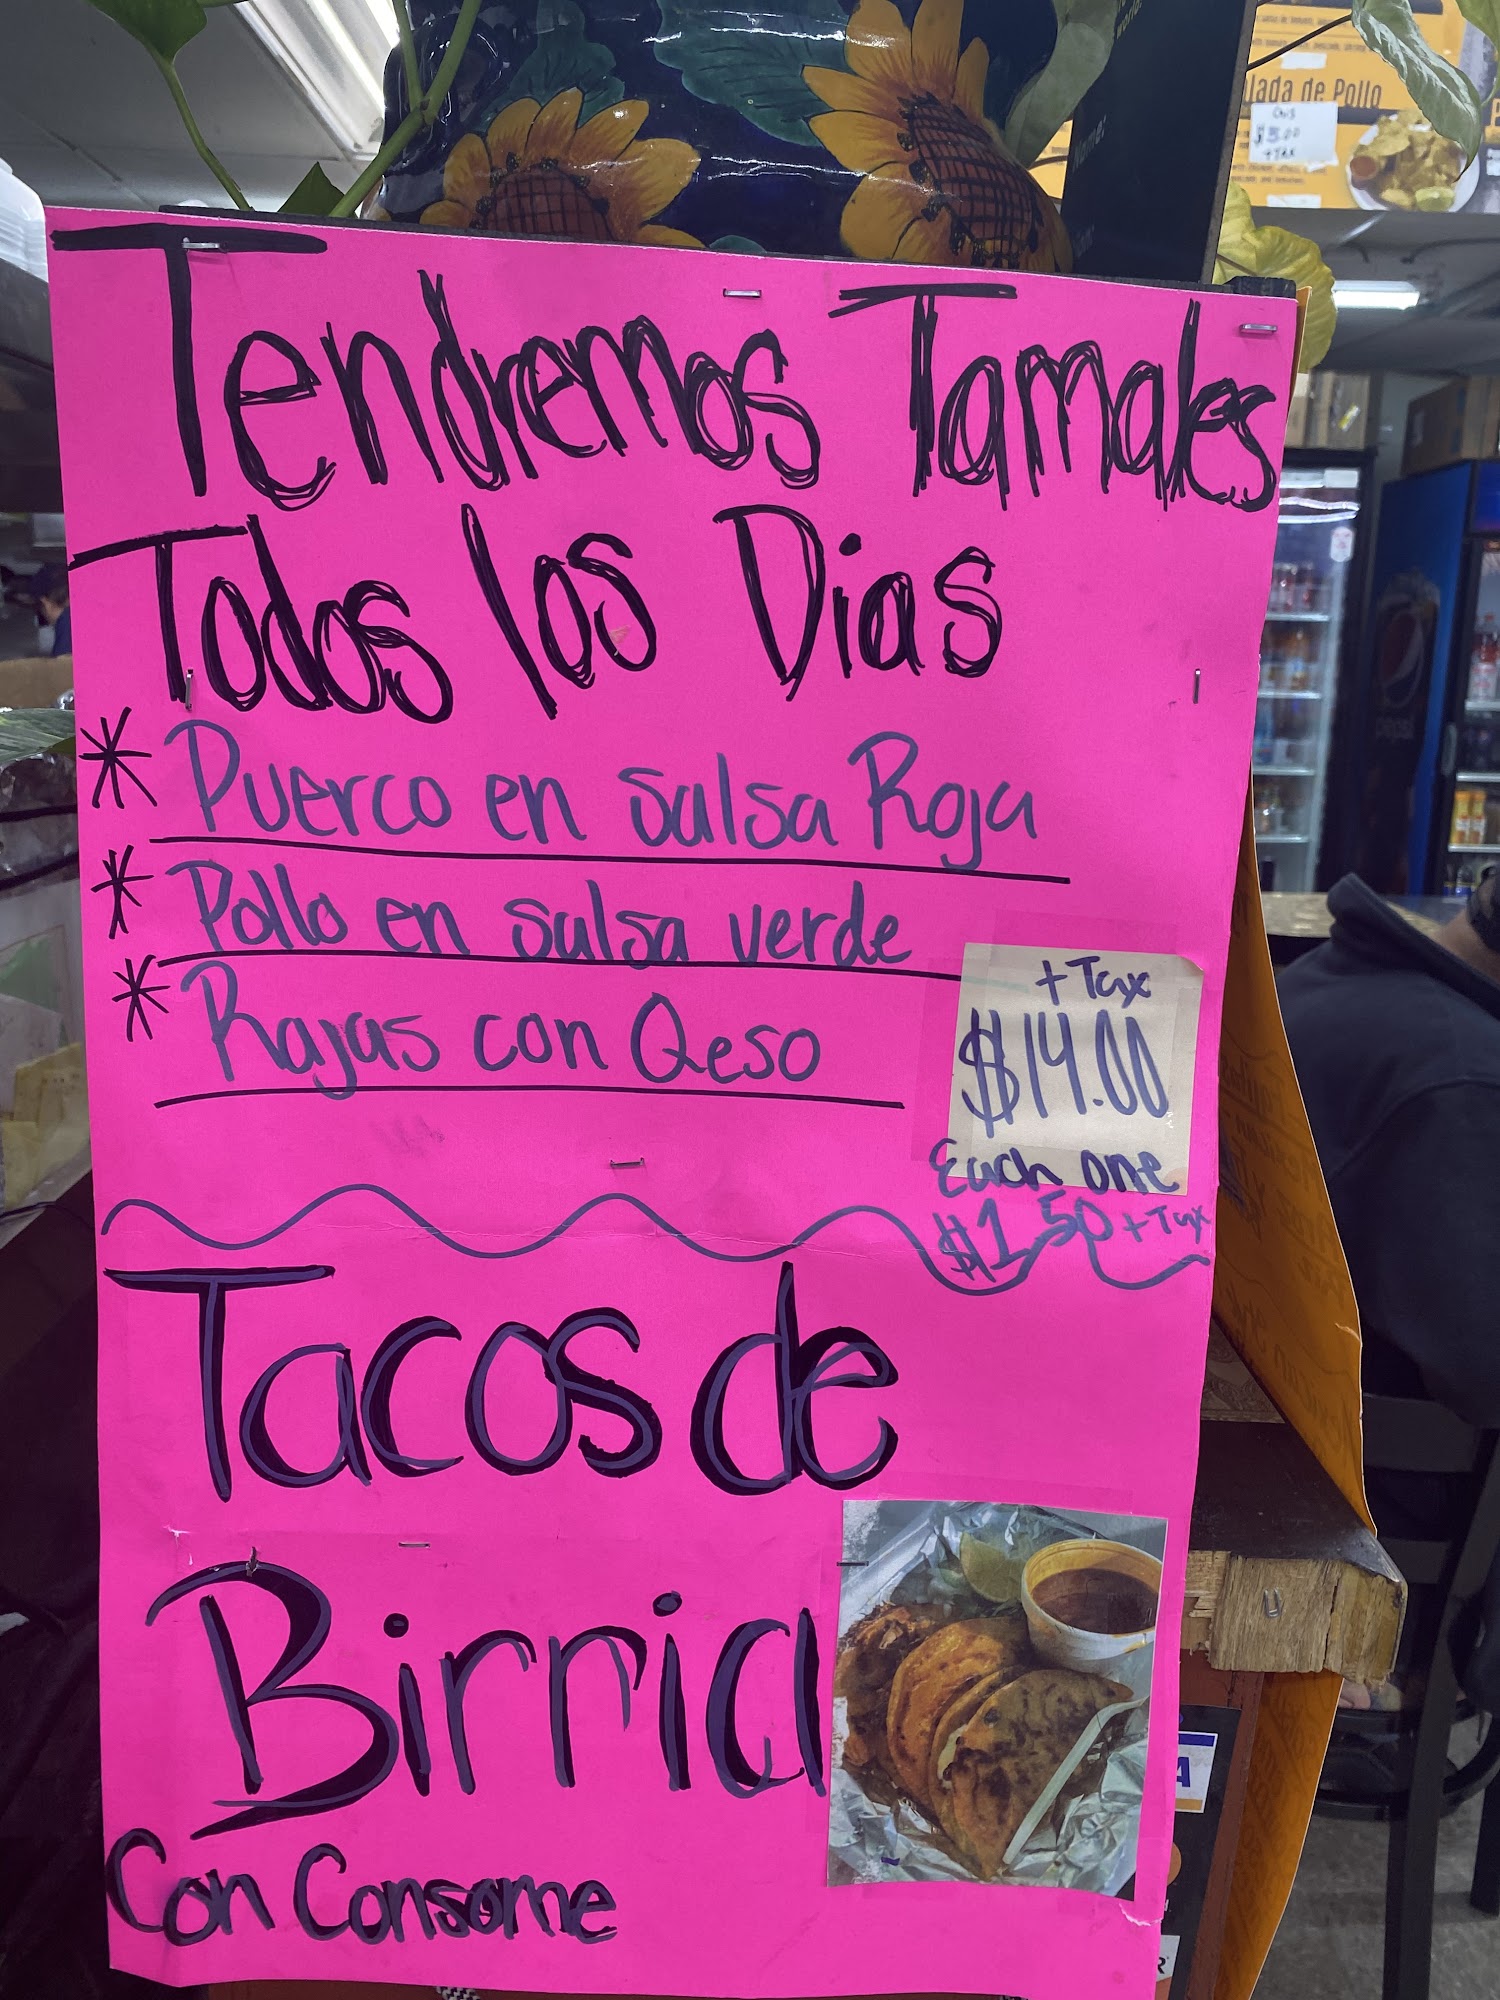 Tendremos Tamales
Todos los Dias
* Puerco en salsa Roja
* Pollo en salsa verde
* Rajas con Qeso
+ Tax
$14.00
Each one
$1 50 + Tax
Tacos de
Birria
Con Consome
alada de Pollo
$5.00
+ TAX
pepsi